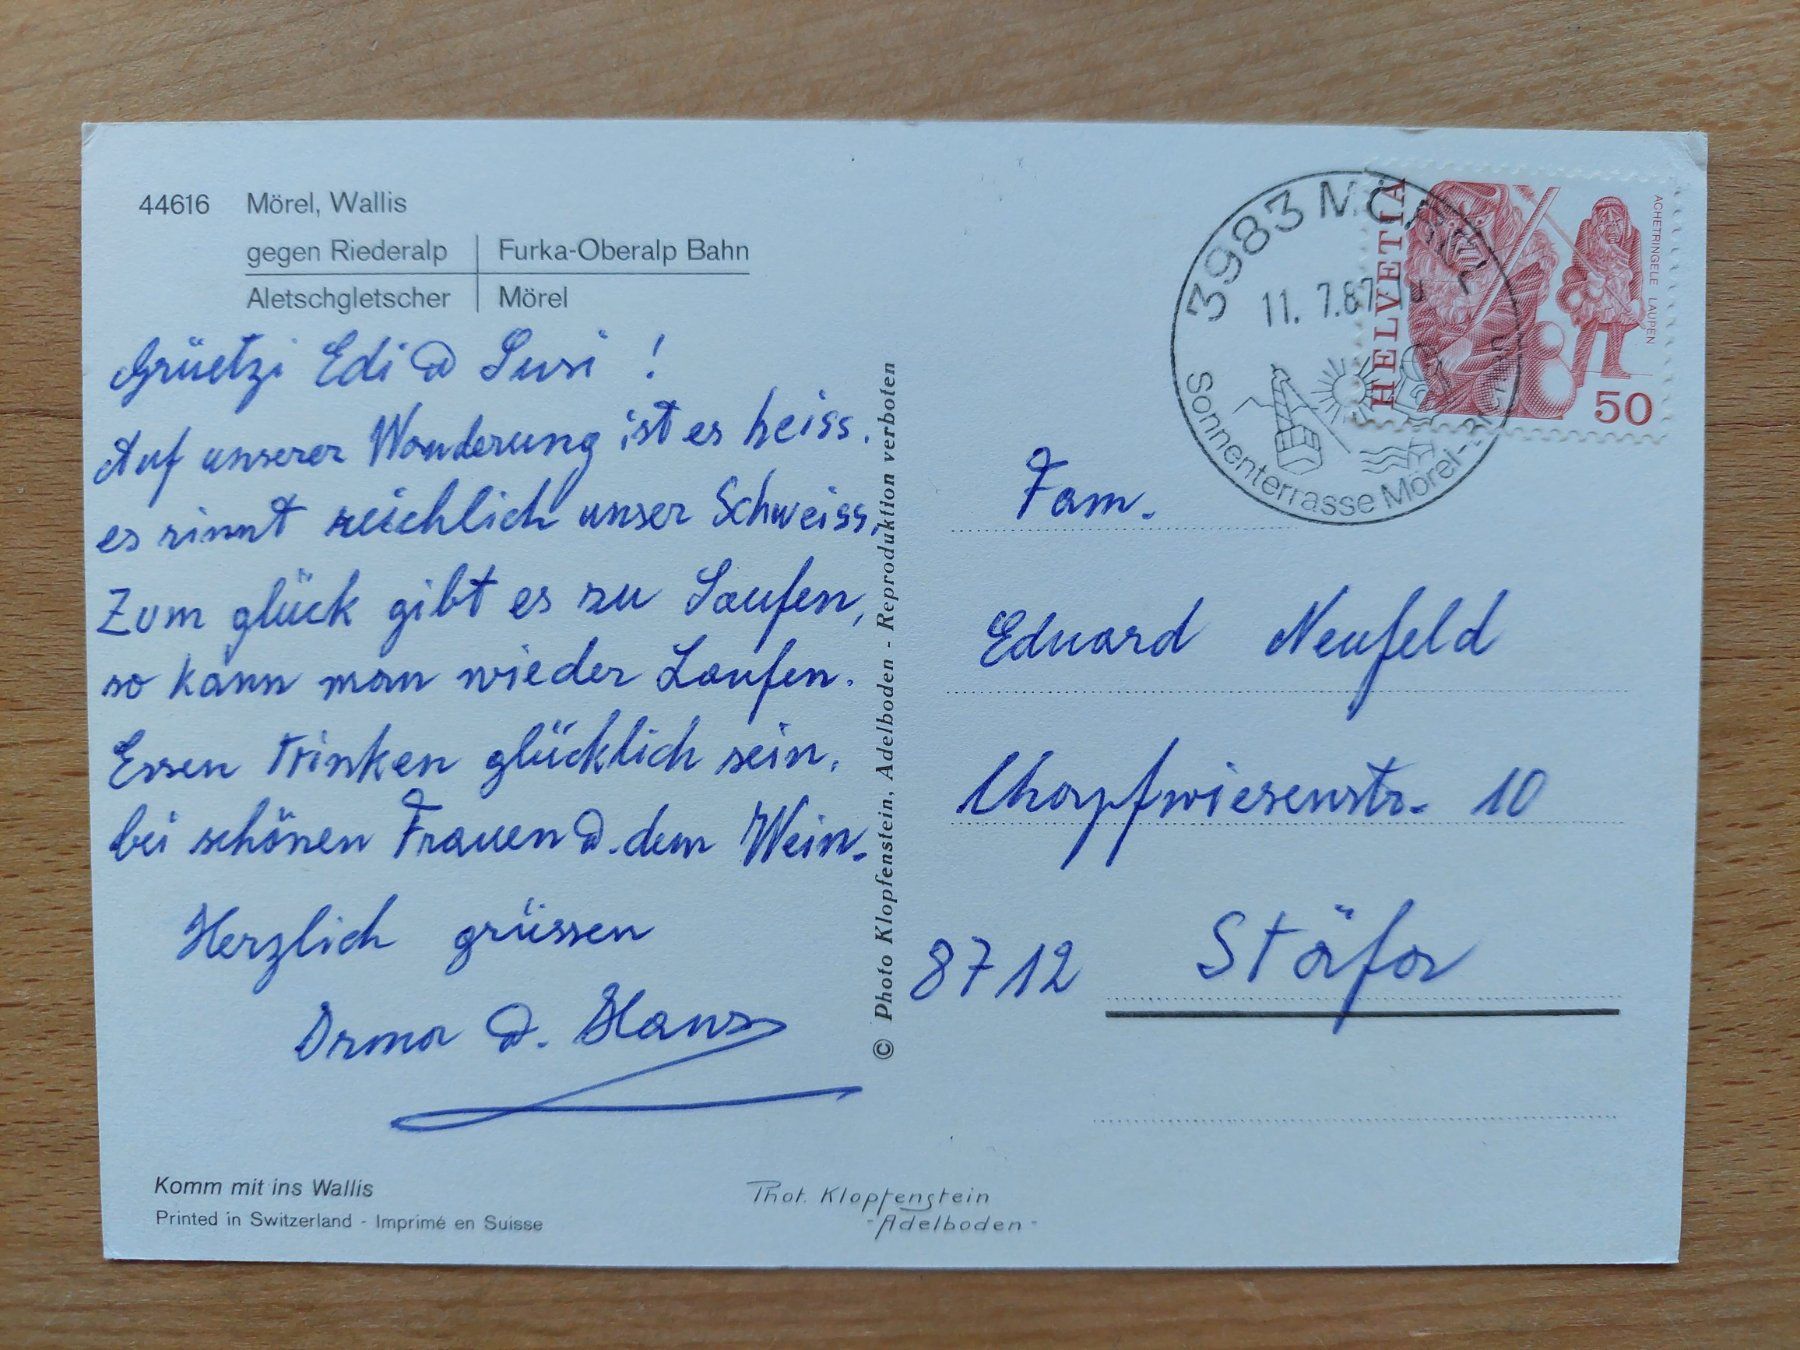 44616 Mörel, Wallis
gegen Riederalp | Furka-Oberalp Bahn
Aletschgletscher | Mörel
Grüetzi Edi & Susi !
Auf unserer Wanderung ist es heiss,
es rinnt reichlich unser Schweiss,
Zum glück gibt es zu Saufen,
so kann man wieder Laufen.
Essen trinken glücklich sein,
bei schönen Frauen & dem Wein.
Herzlich grüssen
Irma & Hans
Komm mit ins Wallis
Printed in Switzerland - Imprimé en Suisse
© Photo Klopfenstein, Adelboden - Reproduktion verboten
Phot. Klopfenstein
-Adelboden-
3983 MÖREL
11. 7.87
Sonnenterrasse Mörel-
HELVETIA
ACHETRINGELE LAUPEN
50
Fam.
Eduard Neufeld
Chopfwiesenstr. 10
8712 Stäfa